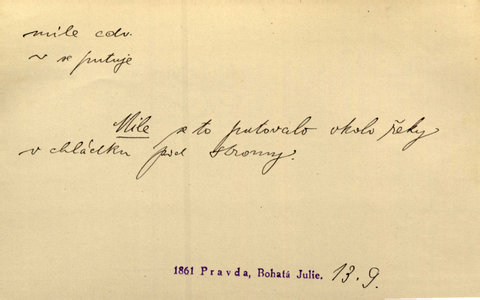 mile adv.
~ se putuje
Mile se to putovalo okolo řeky
v chládku pod stromy.
1861 Pravda, Bohatá Julie. 13. 9.